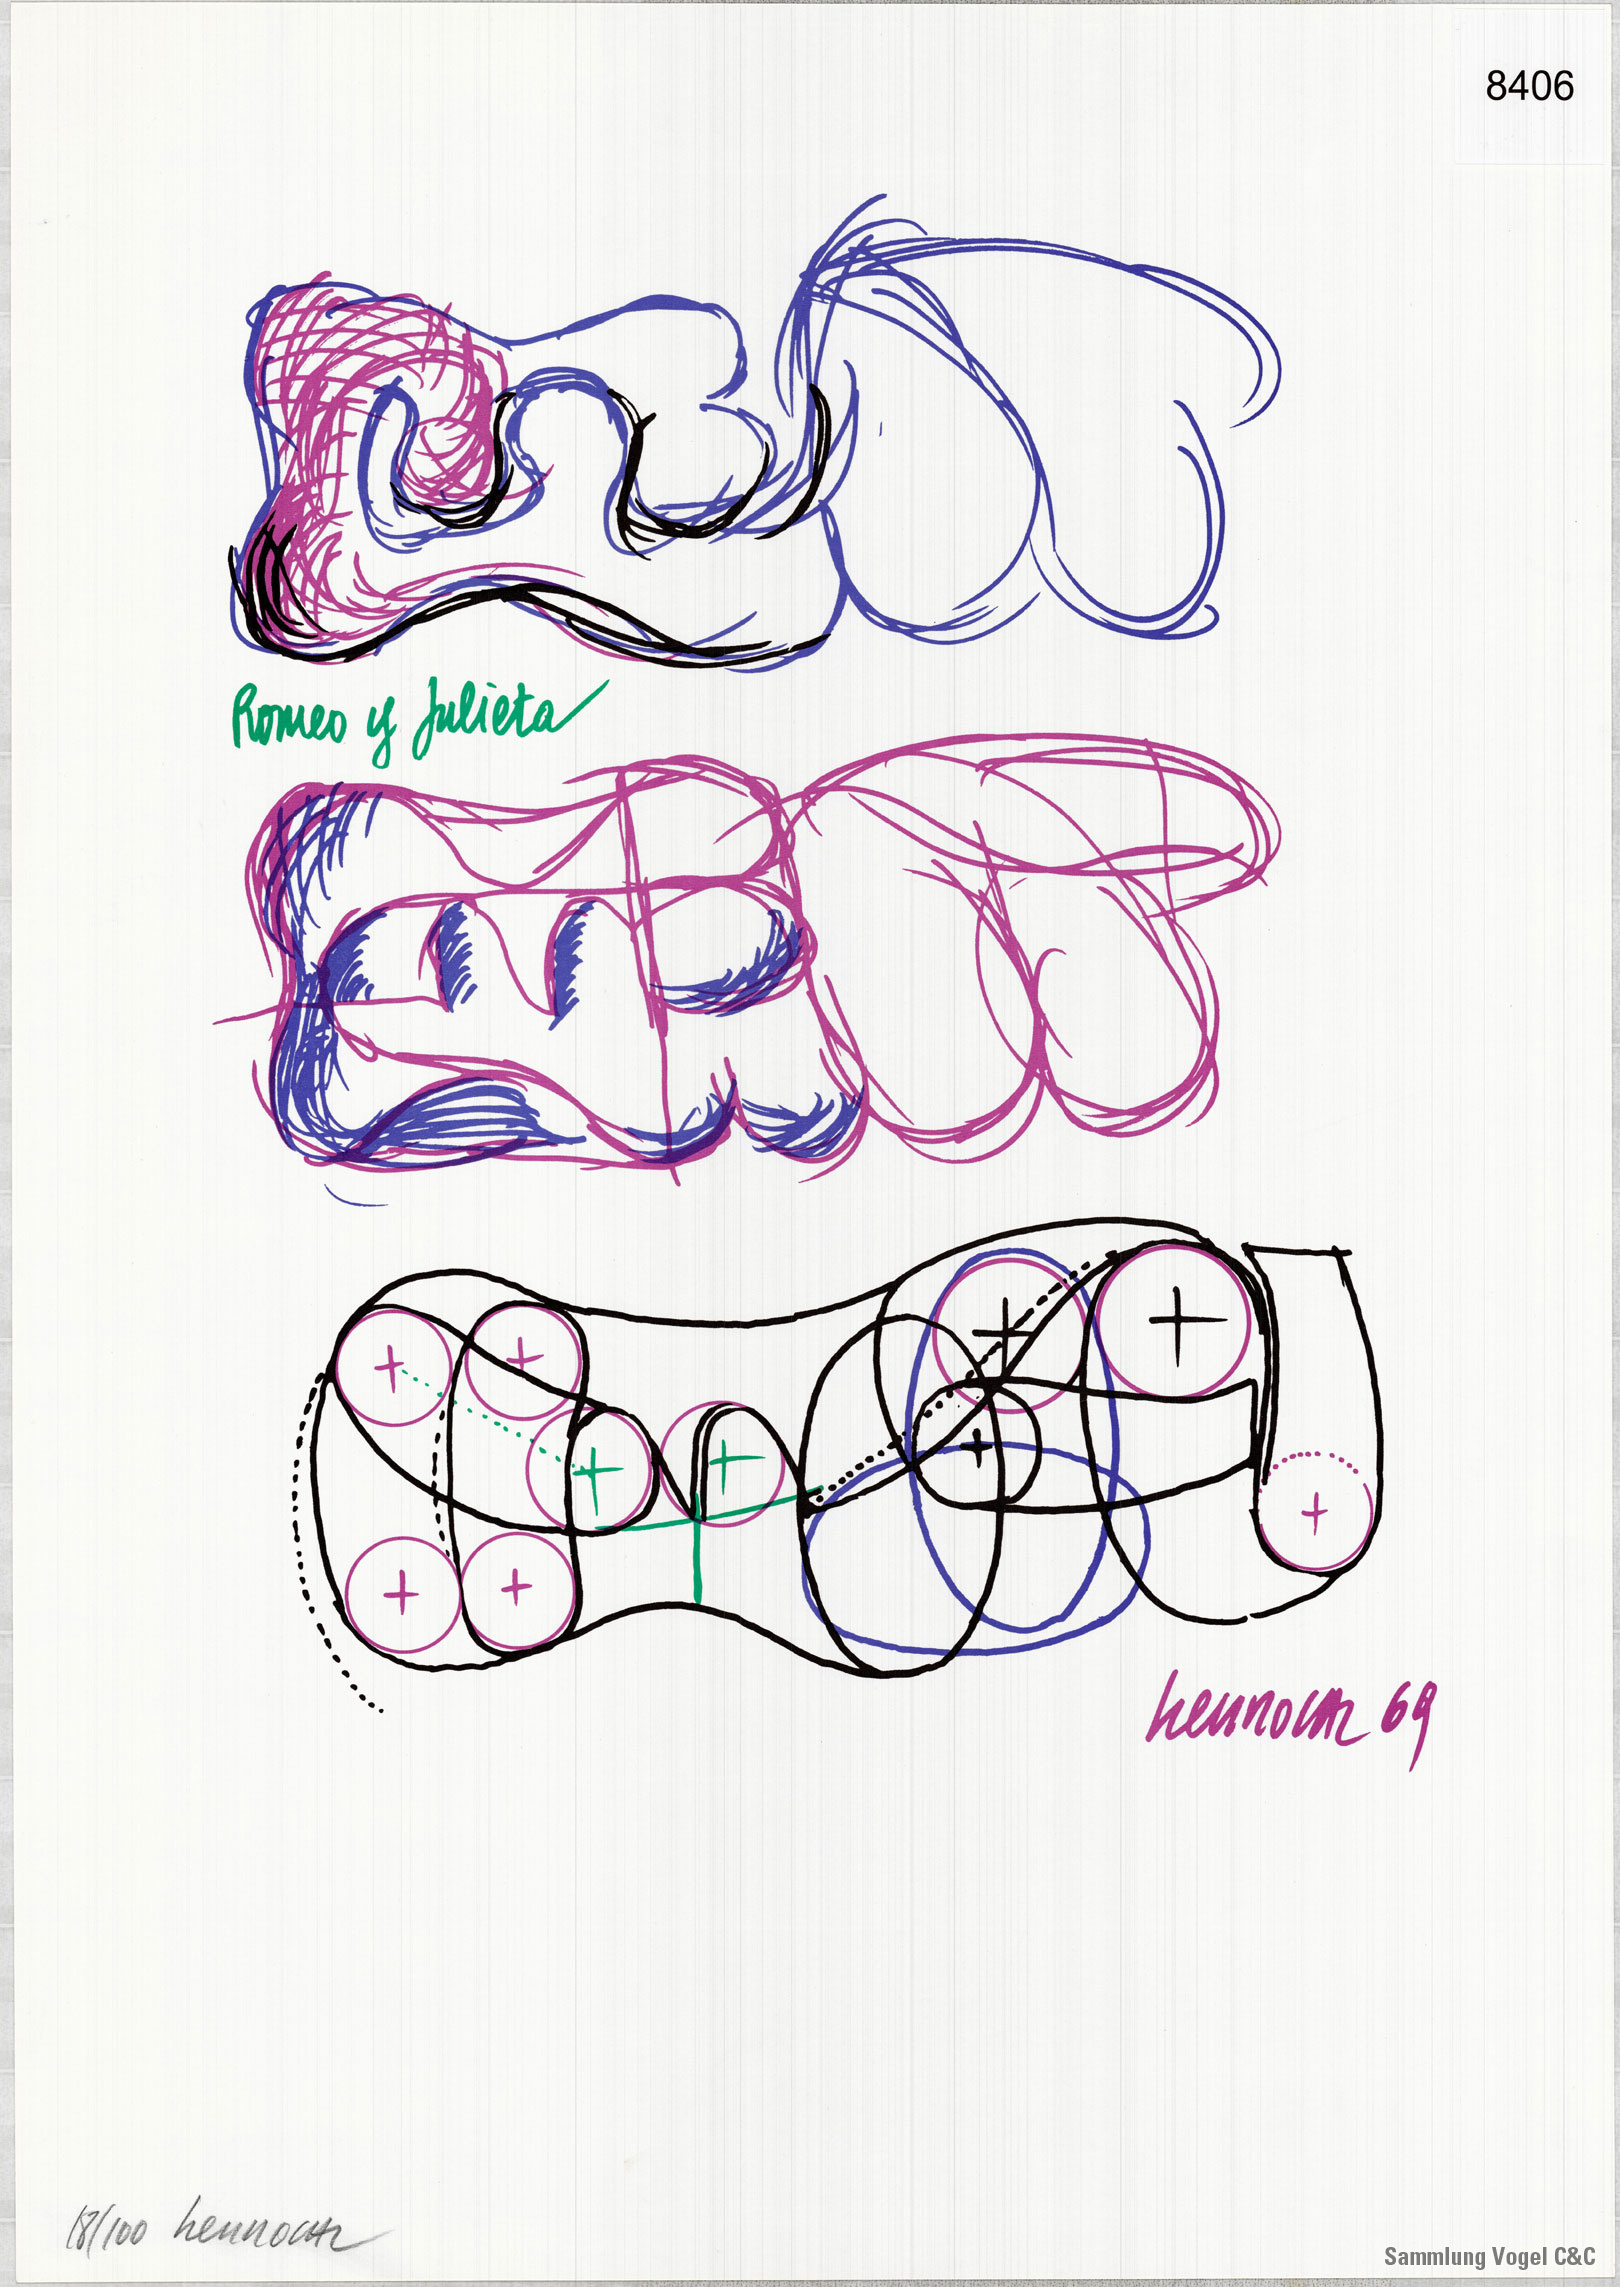 8406
Romeo y Julieta
berrocal 69
18/100 berrocal
Sammlung Vogel C&C